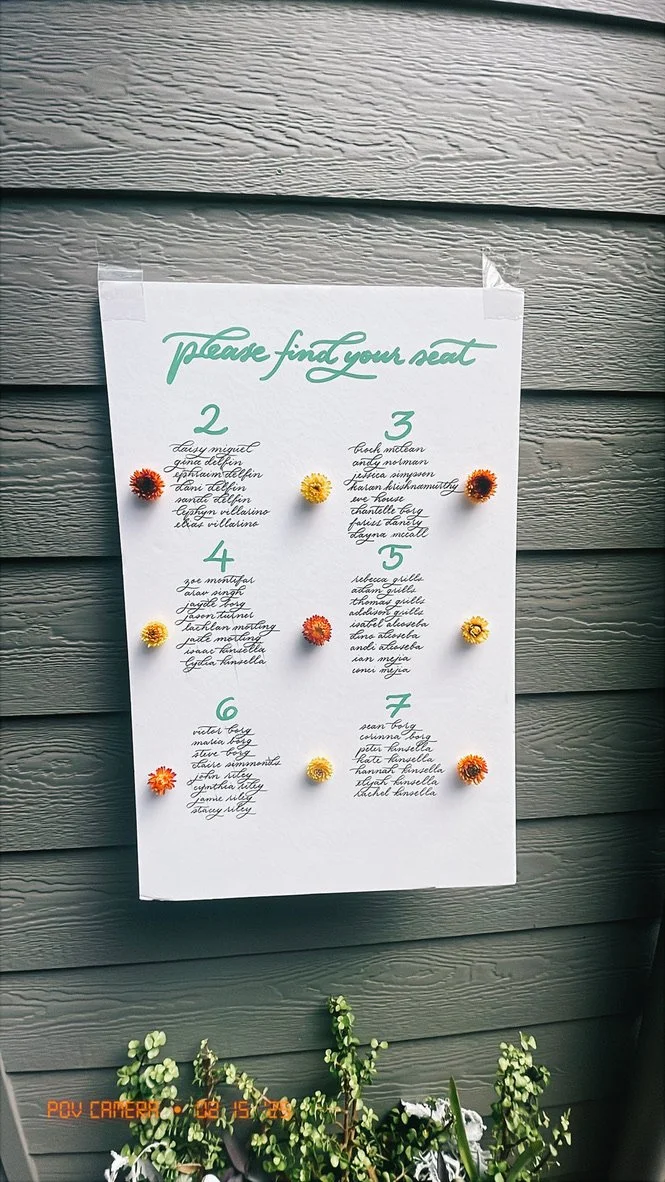 please find your seat
2
daisy miguel
gina delfin
ephraim delfin
dani delfin
sandi delfin
lephyn villarino
elias villarino
3
brock mclean
andy norman
jessica simpson
karan krishnamurthy
eve house
chantelle borg
fariss danery
dayna mccall
4
zoe montifar
arav singh
jayde borg
jason turner
lachlan morting
jade morting
isaac kinsella
lydia kinsella
5
rebecca grills
adam grills
thomas grills
addison grills
isabel alioseba
dino alioseba
andi alioseba
ian mejia
conci mejia
6
victor borg
maria borg
steve borg
claire simmonds
john riley
cynthia riley
jamie riley
stacey riley
7
sean borg
corinna borg
peter kinsella
kate kinsella
hannah kinsella
elijah kinsella
rachel kinsella
POV CAMERA • 02 15 '25